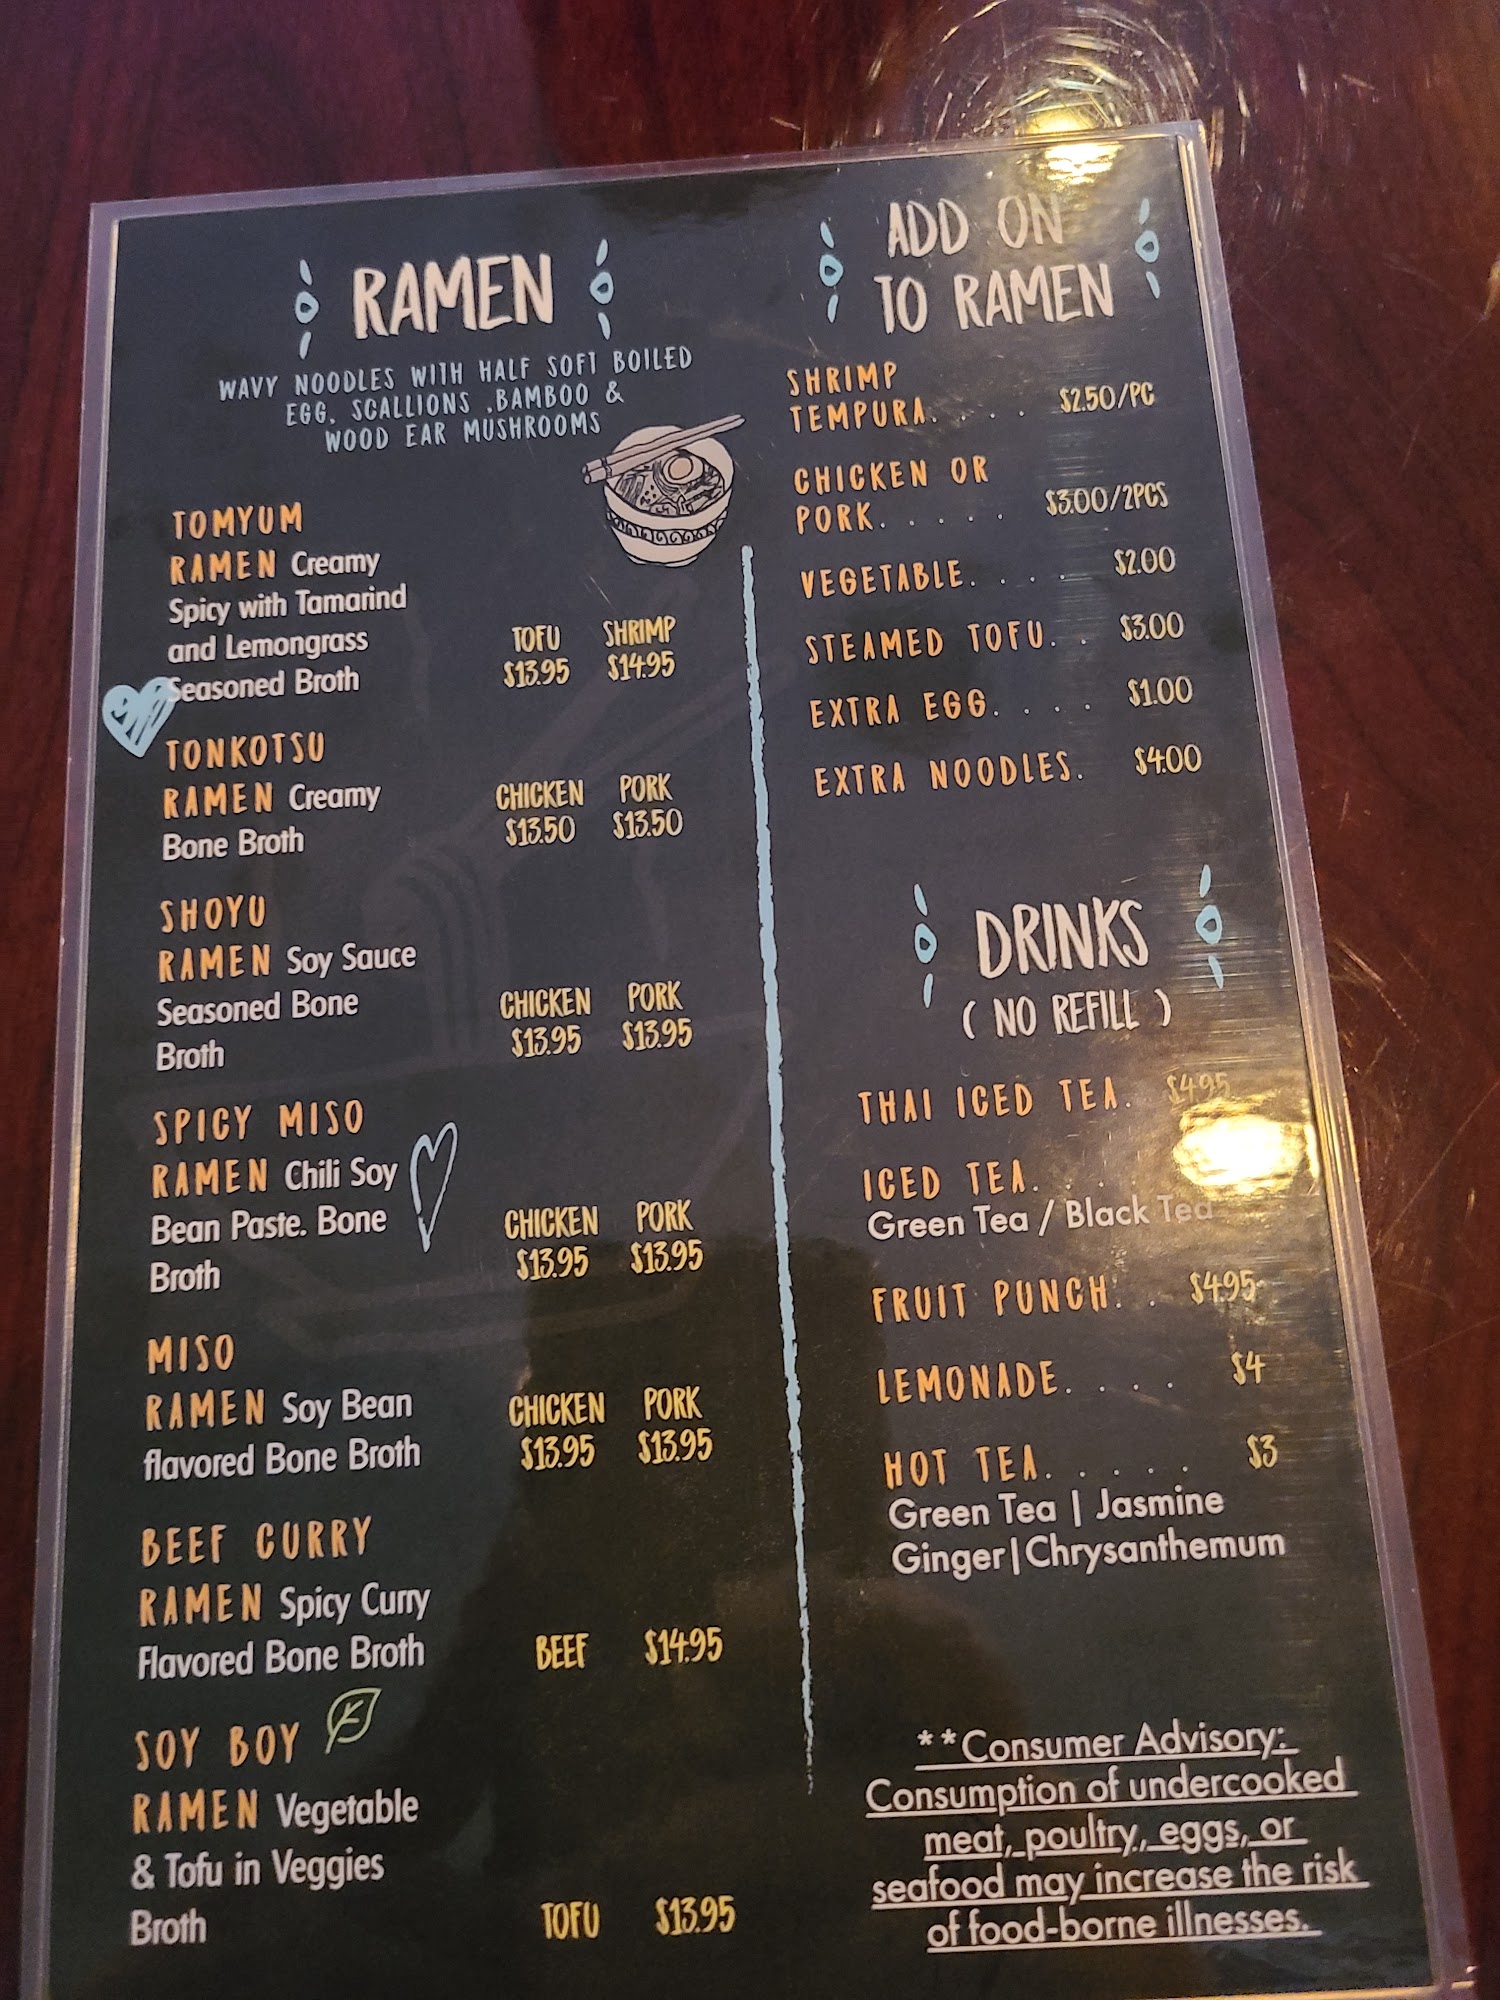 RAMEN
WAVY NOODLES WITH HALF SOFT BOILED
EGG, SCALLIONS ,BAMBOO &
WOOD EAR MUSHROOMS
TOMYUM
RAMEN Creamy
Spicy with Tamarind
and Lemongrass
Seasoned Broth
TOFU SHRIMP
$13.95 $14.95
TONKOTSU
RAMEN Creamy
Bone Broth
CHICKEN PORK
$13.50 $13.50
SHOYU
RAMEN Soy Sauce
Seasoned Bone
Broth
CHICKEN PORK
$13.95 $13.95
SPICY MISO
RAMEN Chili Soy
Bean Paste. Bone
Broth
CHICKEN PORK
$13.95 $13.95
MISO
RAMEN Soy Bean
flavored Bone Broth
CHICKEN PORK
$13.95 $13.95
BEEF CURRY
RAMEN Spicy Curry
Flavored Bone Broth
BEEF $14.95
SOY BOY
RAMEN Vegetable
& Tofu in Veggies
Broth
TOFU $13.95
ADD ON
TO RAMEN
SHRIMP
TEMPURA. . . . $2.50/PC
CHICKEN OR
PORK. . . . . $3.00/2PCS
VEGETABLE. . . . $2.00
STEAMED TOFU. . $3.00
EXTRA EGG. . . . $1.00
EXTRA NOODLES. $4.00
DRINKS
( NO REFILL )
THAI ICED TEA. $4.95
ICED TEA. . .
Green Tea / Black Tea
FRUIT PUNCH. . $4.95
LEMONADE. . . . $4
HOT TEA. . . . . $3
Green Tea | Jasmine
Ginger|Chrysanthemum
**Consumer Advisory:
Consumption of undercooked
meat, poultry, eggs, or
seafood may increase the risk
of food-borne illnesses.